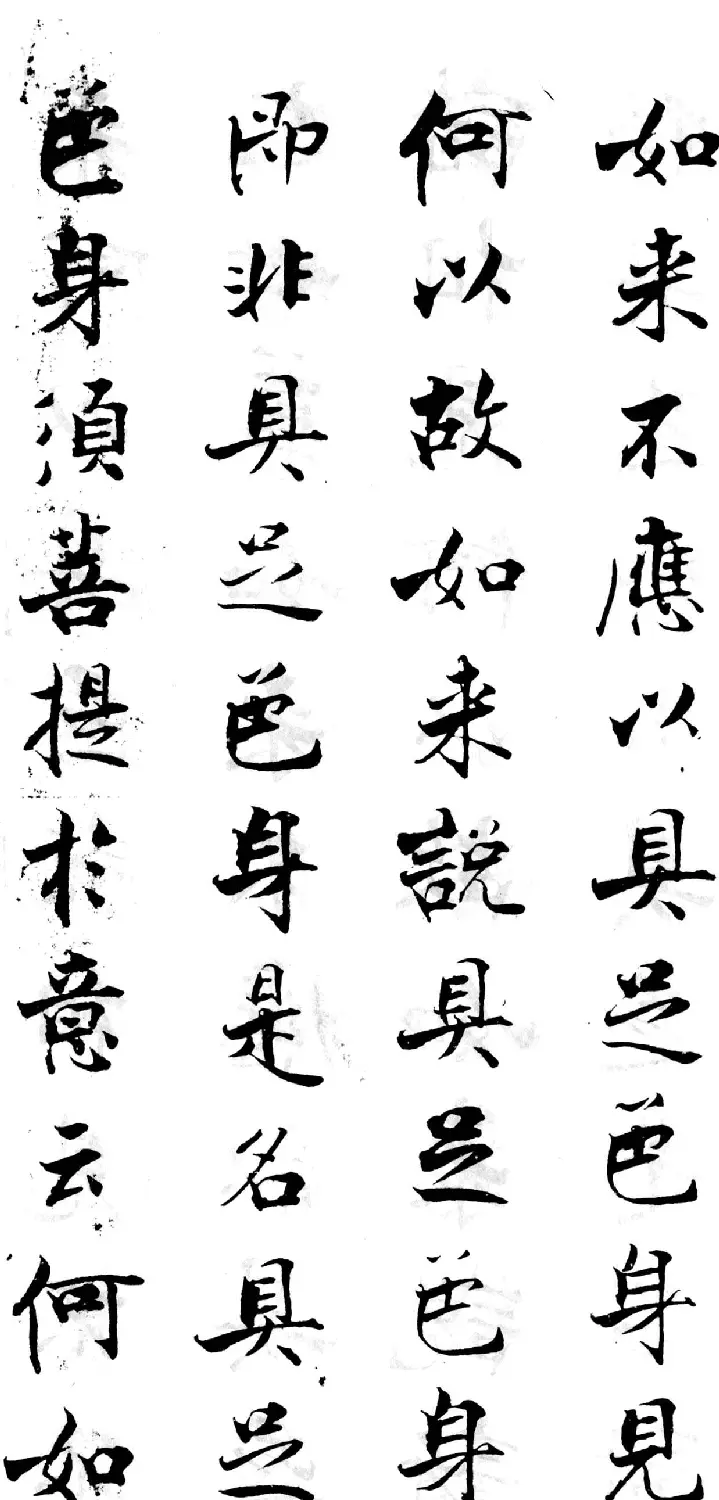 如来不應以具足色身見
何以故如来説具足色身
即非具足色身是名具足
色身須菩提於意云何如